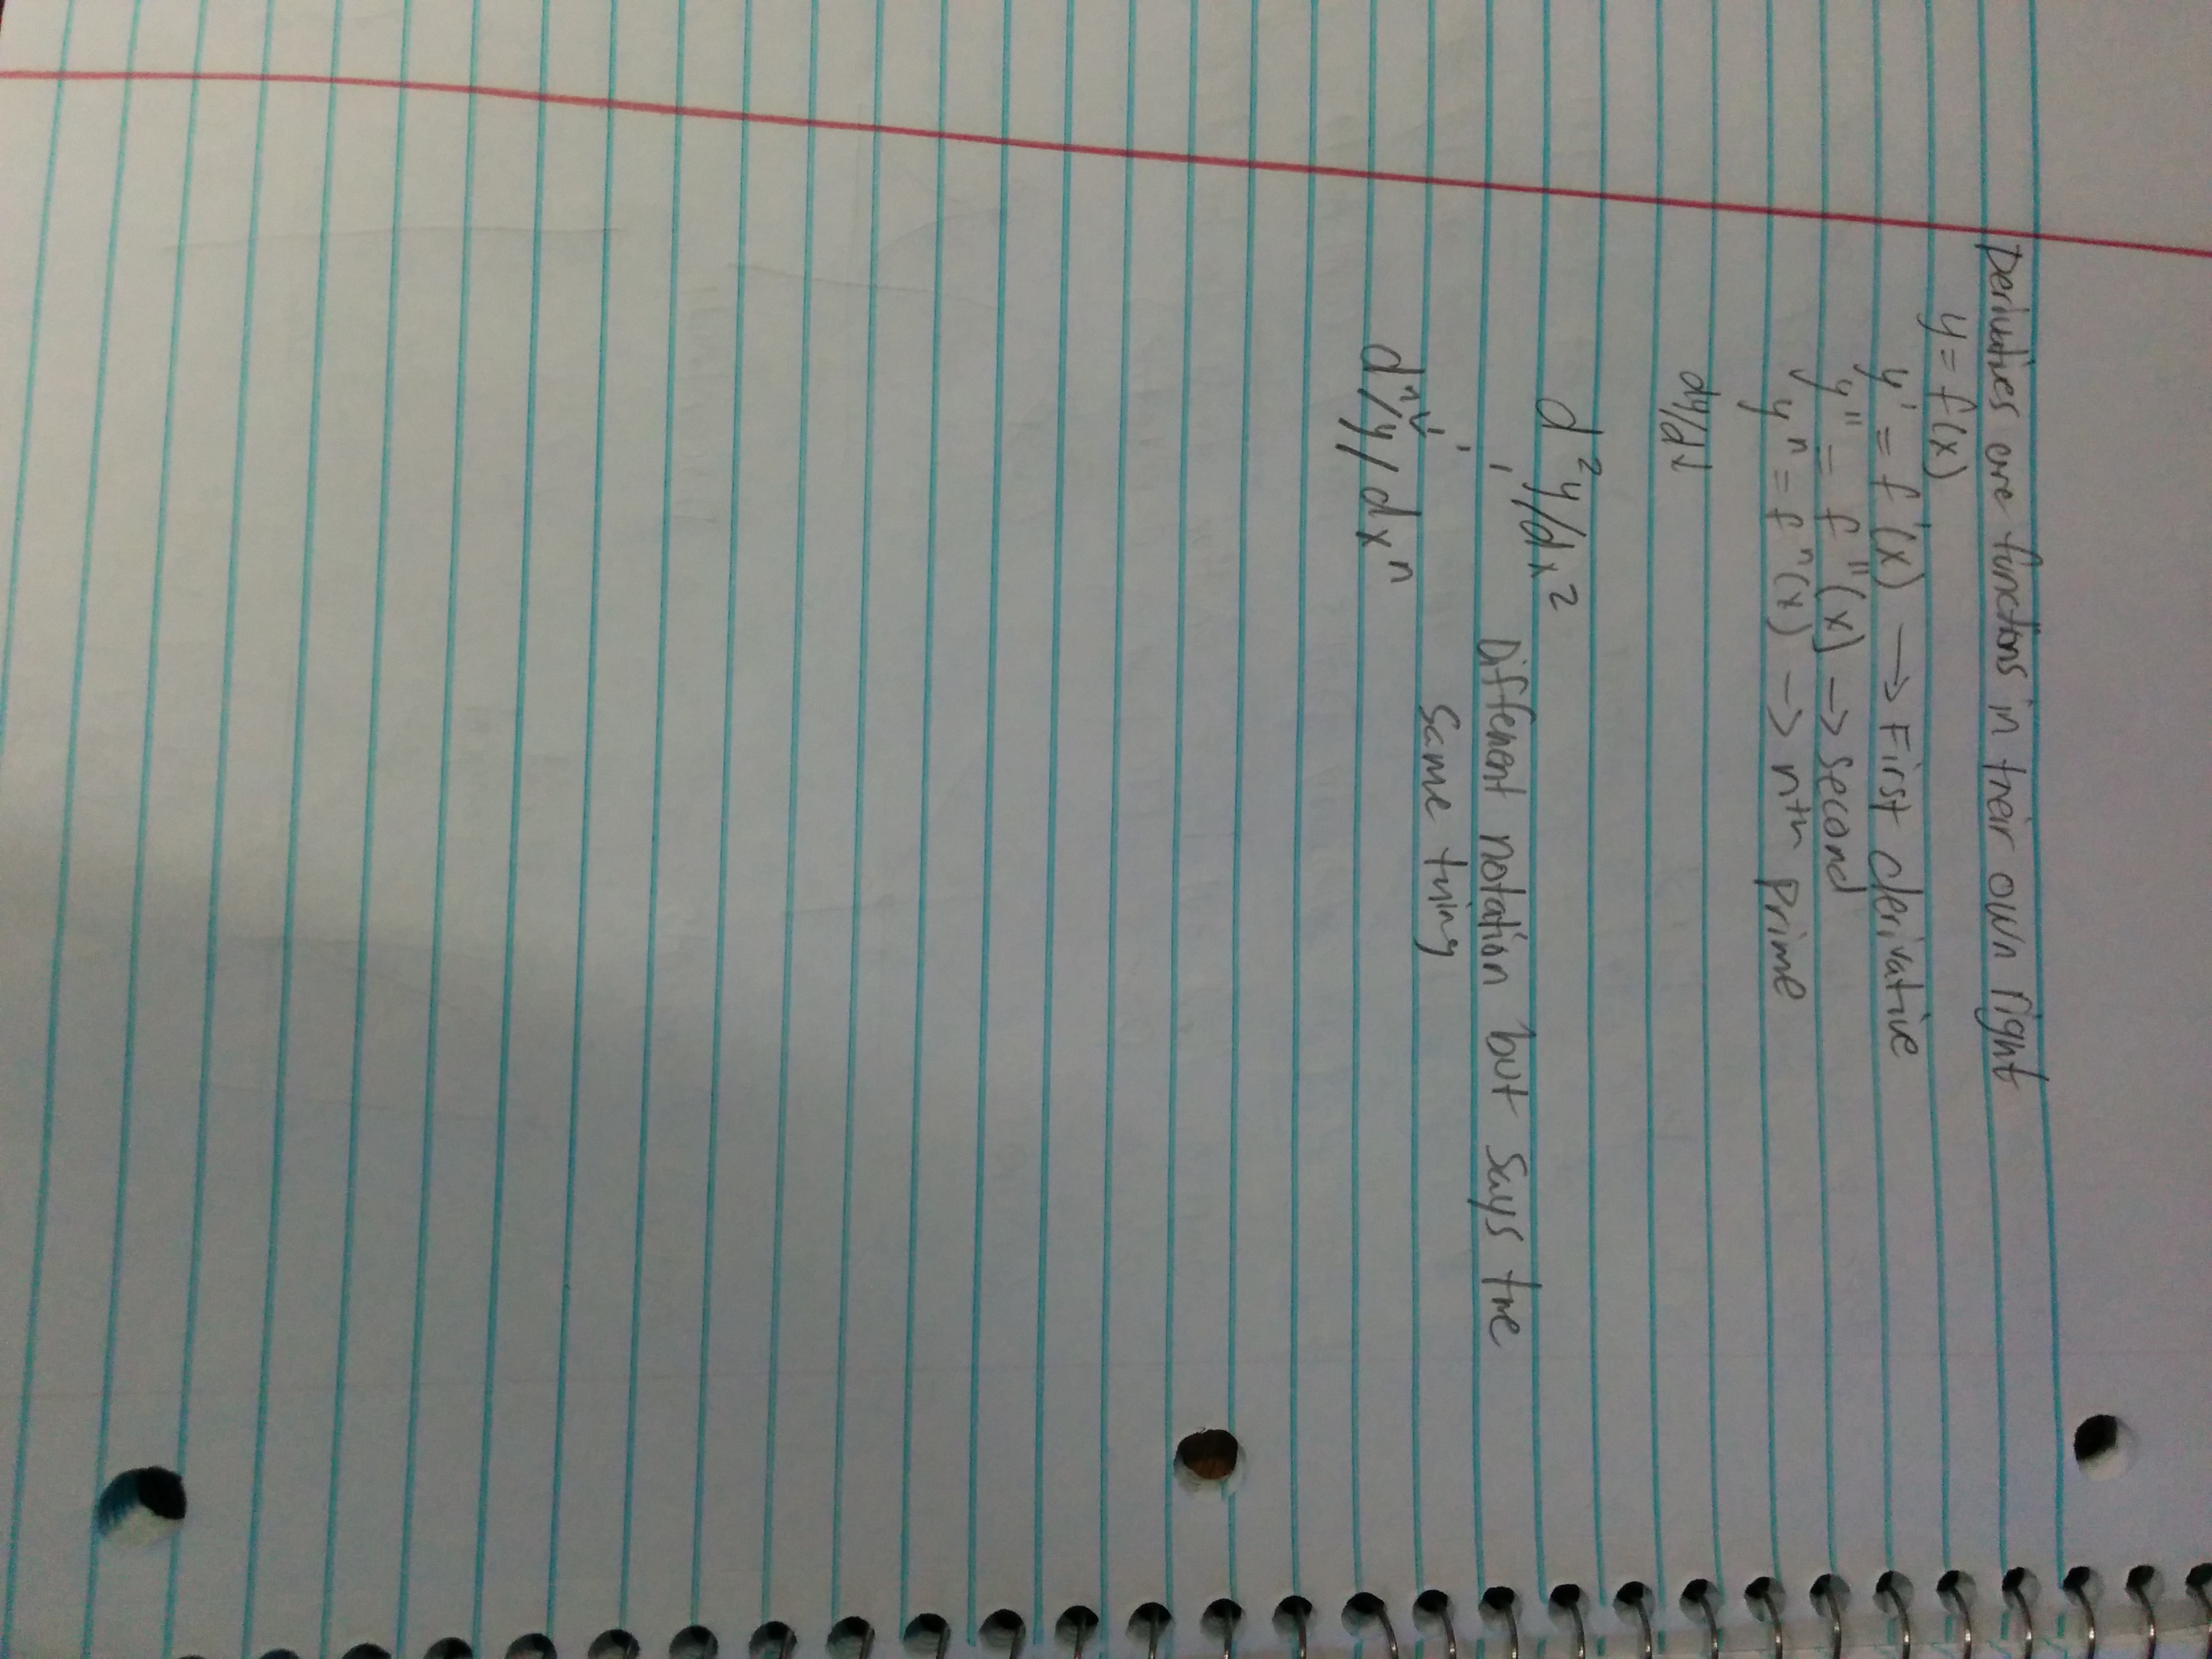 Derivatives are functions in their own right
y = f(x)
y' = f'(x) → First derivative
y'' = f''(x) → second
yⁿ = fⁿ(x) → nth prime
dy/dx
d²y/dx²
Different notation but says the
same thing
dⁿy/dxⁿ